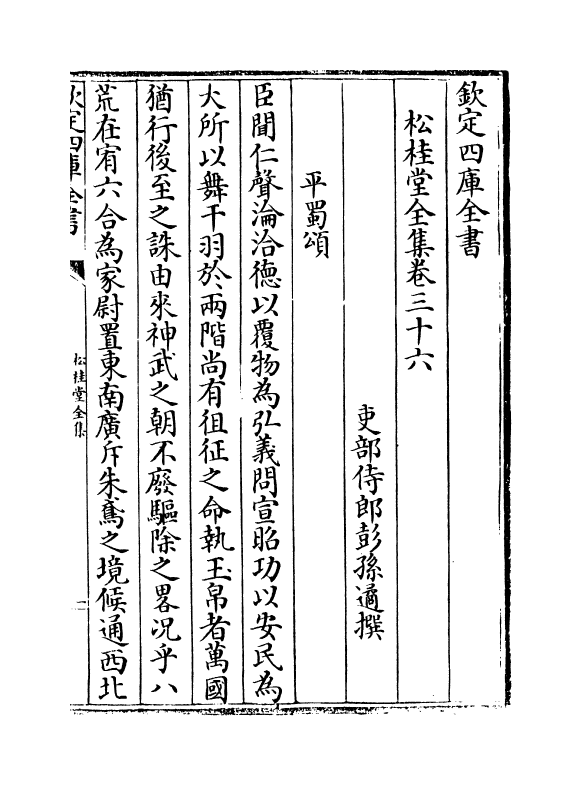 欽定四庫全書
松桂堂全集卷三十六
吏部侍郎彭孫遹撰
平蜀頌
臣聞仁聲淪洽德以覆物為弘義問宣昭功以安民為
大所以舞干羽於兩階尚有徂征之命執玉帛者萬國
猶行後至之誅由來神武之朝不廢驅除之畧況乎八
荒在宥六合為家尉置東南廣斥朱鳶之境候通西北
欽定四庫全書
松桂堂全集
一